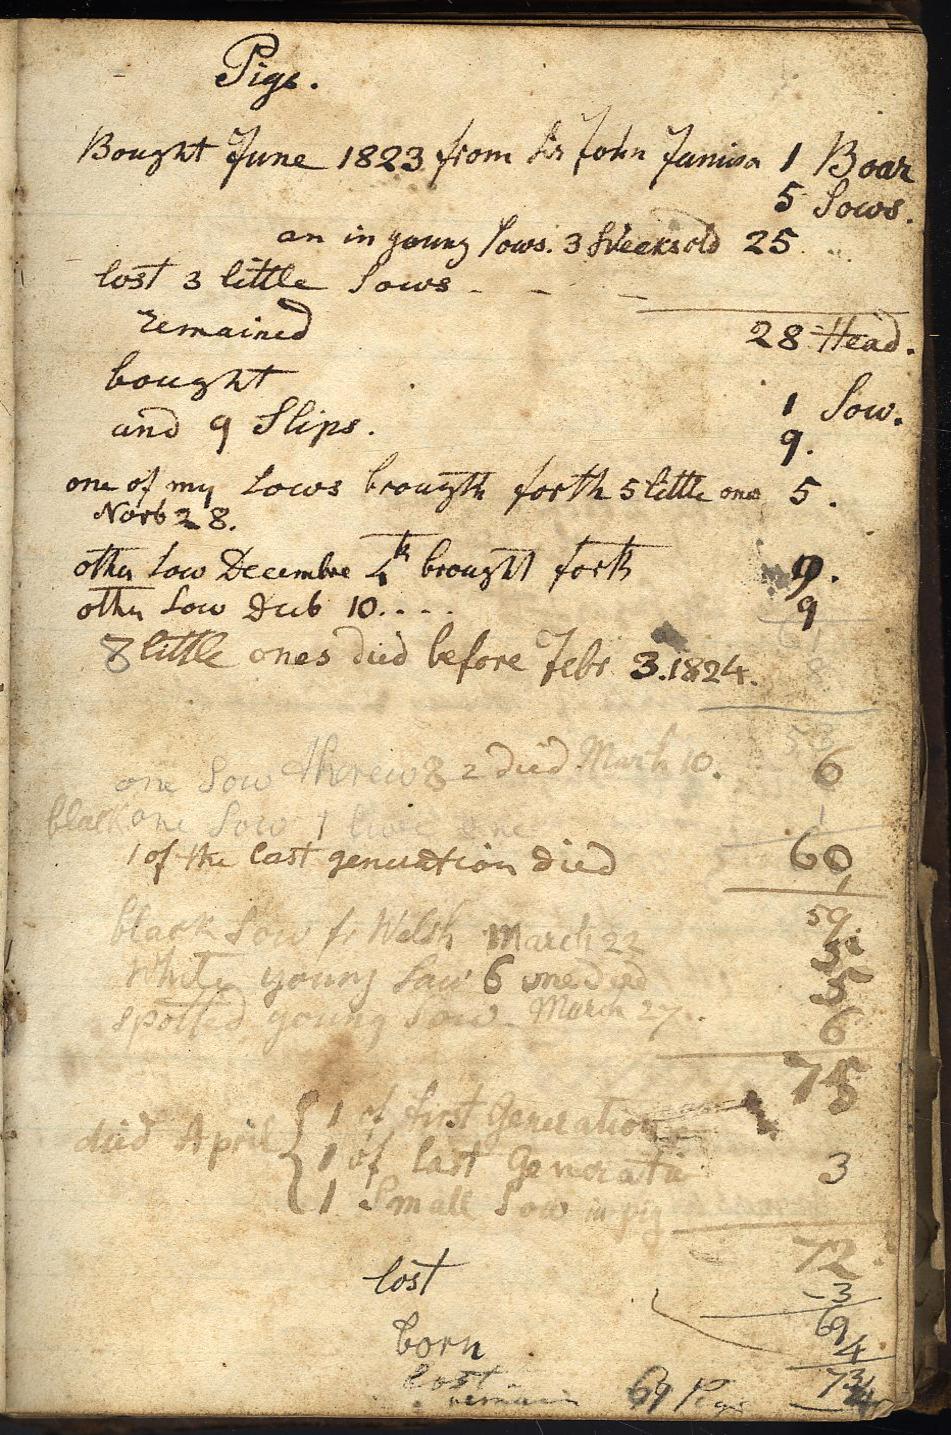 Pigs.
Bought June 1823 from Sir John Jamison 1 Boar
5 Sows.
an in young Sows. 3 Weeks old 25
lost 3 little Sows - - -
remained 28 Head.
bought 1 Sow.
and 9 Slips. 9.
one of my Sows brougth forth 5 little ones 5.
Novb 28.
other Sow Decembre 4th brought forth 9.
other Sow Decb 10.... 9
61
8 little ones died before Febr 3. 1824. 8
53
one Sow threw 8 2 died March 10. 6
black one Sow 1 live one 1
1 of the last generation died 60
1
59
black Sow fr Welsh March 22
White young Sow 6 one died 5
spotted young Sow March 27. 6
75
died April { 1 of first Generation
1 of last Generatio 3
1 Small Sow in pig
72
lost -3
69
born 4
73
lost 4
remain 69 Pigs